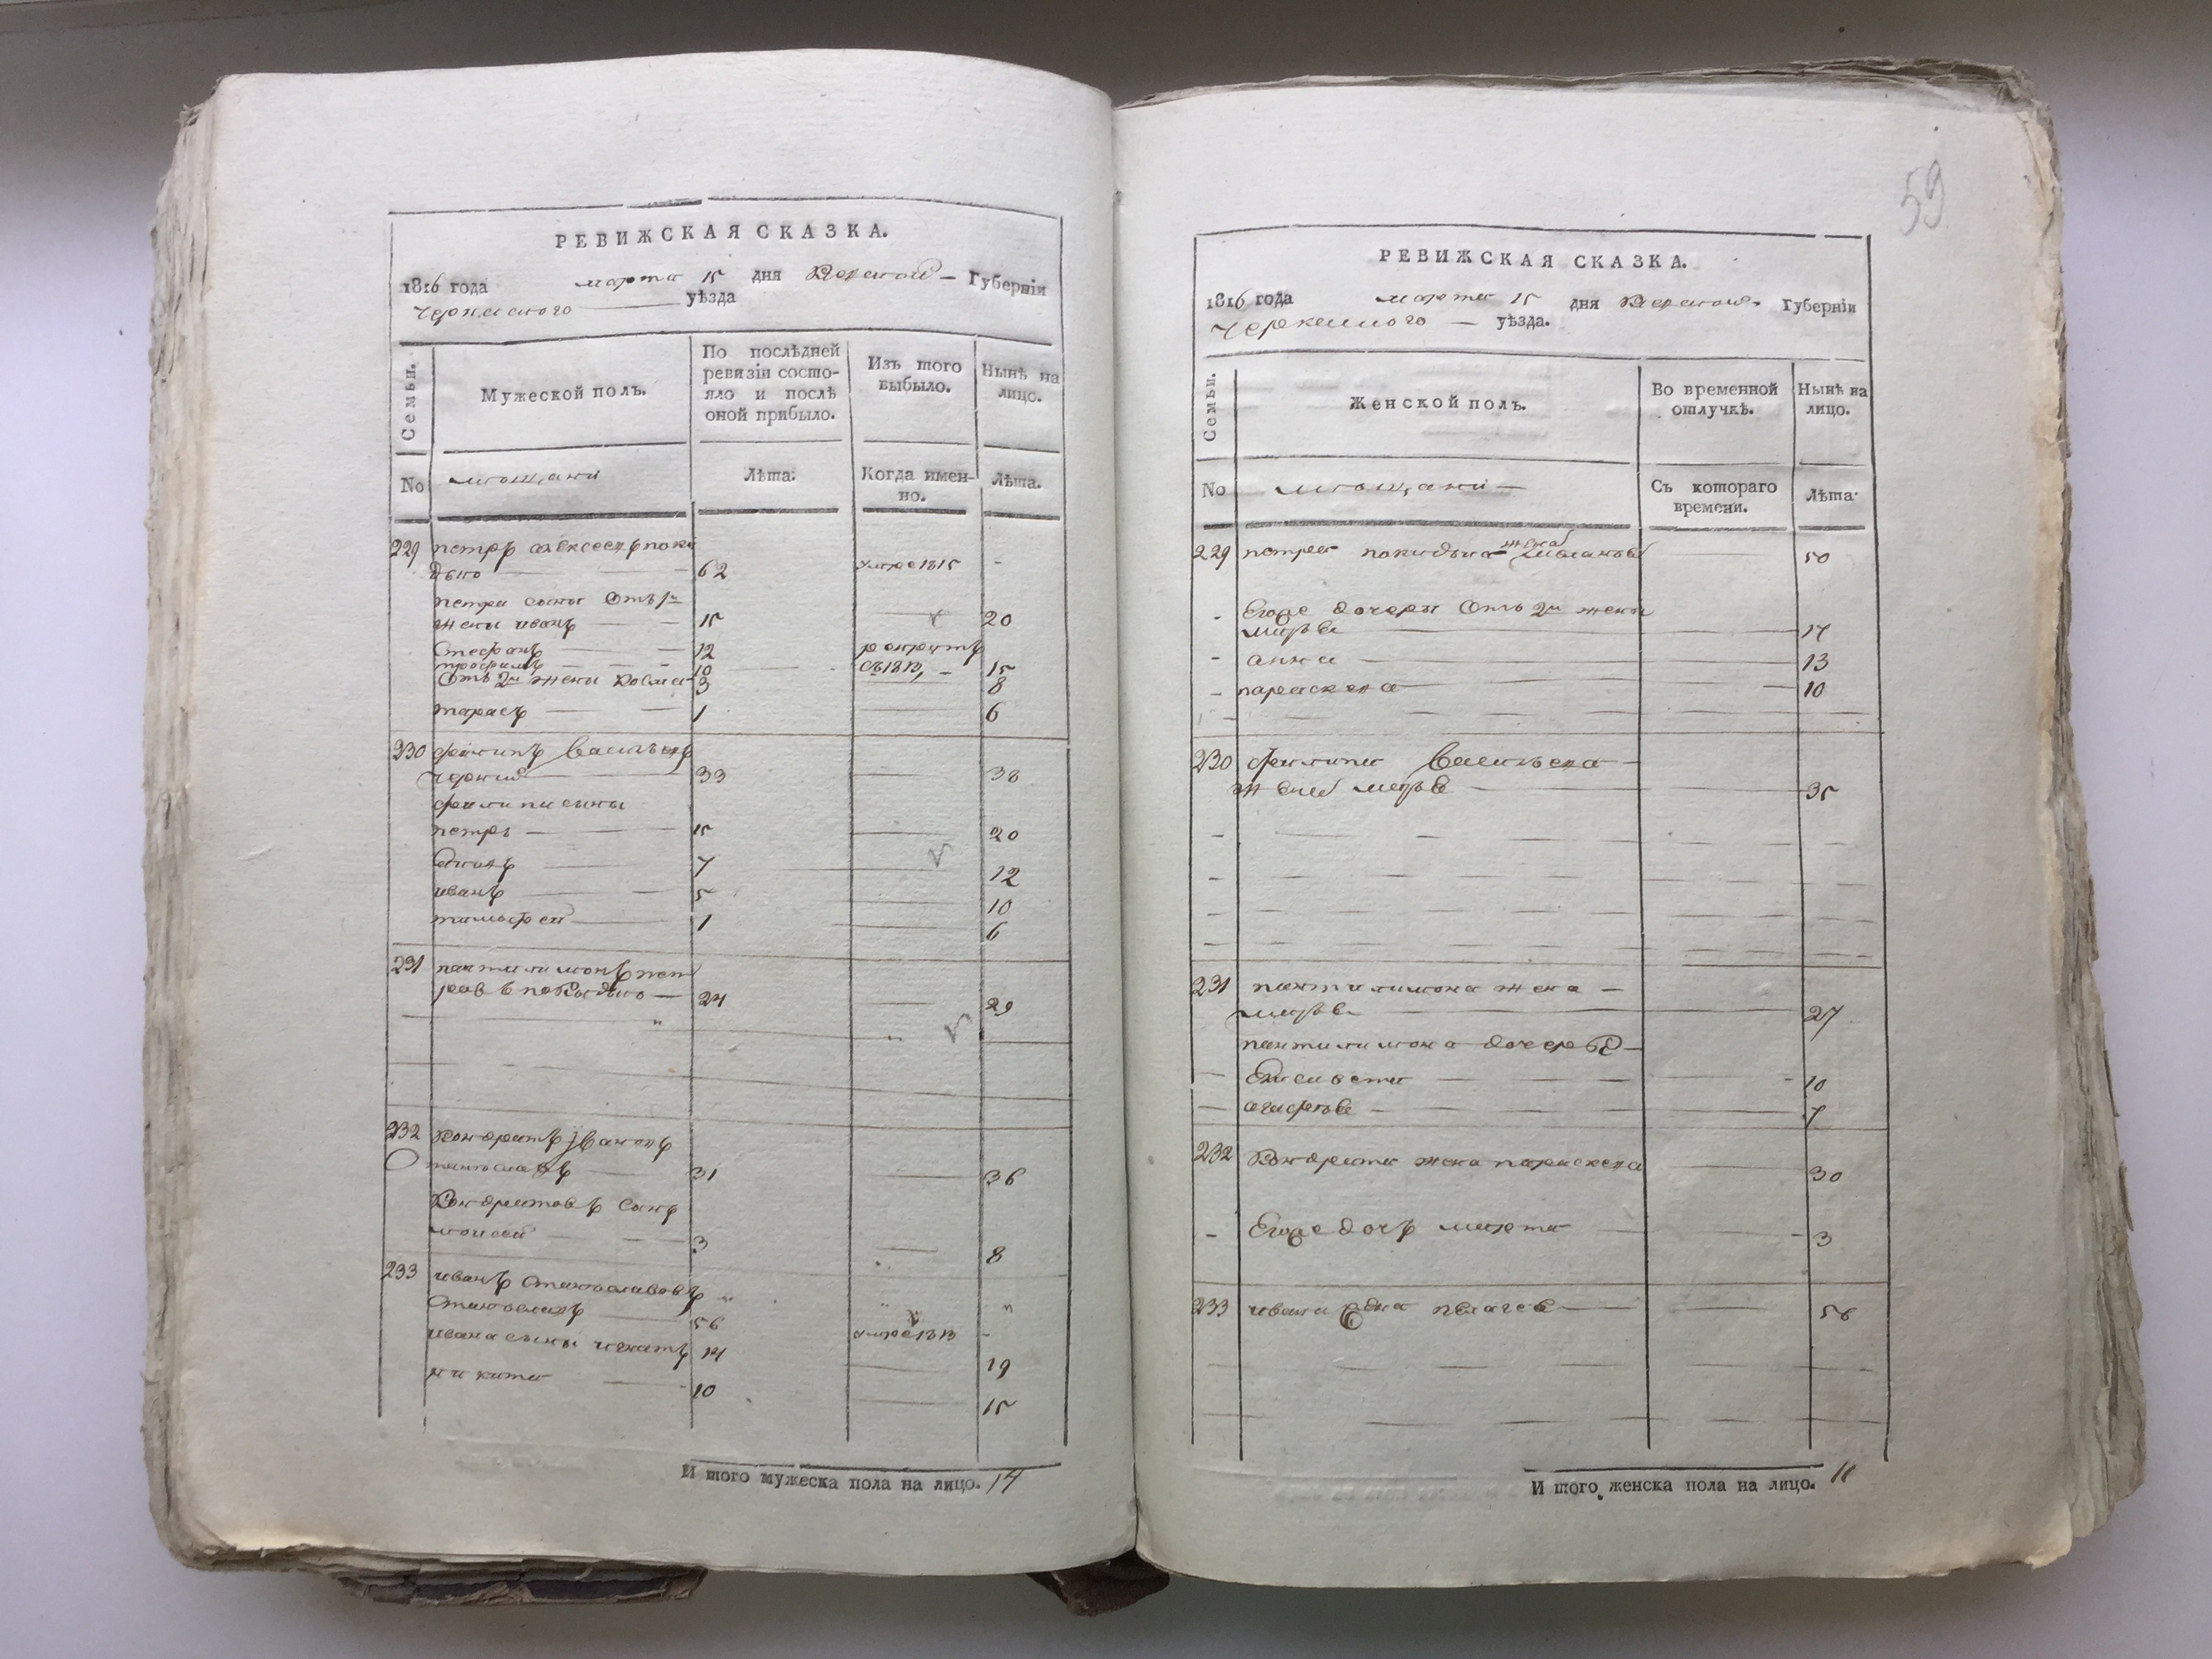 РЕВИЖСКАЯ СКАЗКА.
1816 года марта 15 дня Киевской Губерніи
Черкаского уѣзда
Семьи.
Мужеской полъ.
По послѣдней ревизіи состо-
яло и послѣ оной прибыло.
Изъ того выбыло.
Нынѣ на лицо.
No мѣщани
Лѣта.
Когда имен-
но.
Лѣта.
229 петръ алексеевъ поки
дко 62 умре 1815 -
петра сыны отъ 1й
жены иванъ 15 20
Стефанъ 12 рекрутъ
трофимъ 10 15
отъ 2й жены козма 3 8
тарасъ 1 6
230 филипъ Васильевъ
черний 33 38
филипа сыны
петръ 15 20
7 12
иванъ 5 10
тимофей 1 6
231 пантилимонъ пет
ровъ покидко 24 29
232 Кондратъ Ивановъ
31 36
Кондратовъ сынъ
моисей 3 8
233 иванъ
56 умре 1813 -
ивана сыны игнатъ 14 19
никита 10 15
И того мужеска пола на лицо. 14
59
РЕВИЖСКАЯ СКАЗКА.
1816 года марта 15 дня Киевской Губерніи
Черкаского уѣзда.
Семьи.
Женской полъ.
Во временной отлучкѣ.
Нынѣ на лицо.
No мѣщани
Съ котораго времени.
Лѣта.
229 петра жена 50
Его дочери отъ 2й жены
17
анна 13
параскева 10
230 филипа Васильева
жена 35
231 пантилимона жена
27
пантилимона дочери
10
агафия 7
232 Кондрата жена параскева 30
Его дочъ марта 3
233 ивана пелагея 56
И того женска пола на лицо. 11